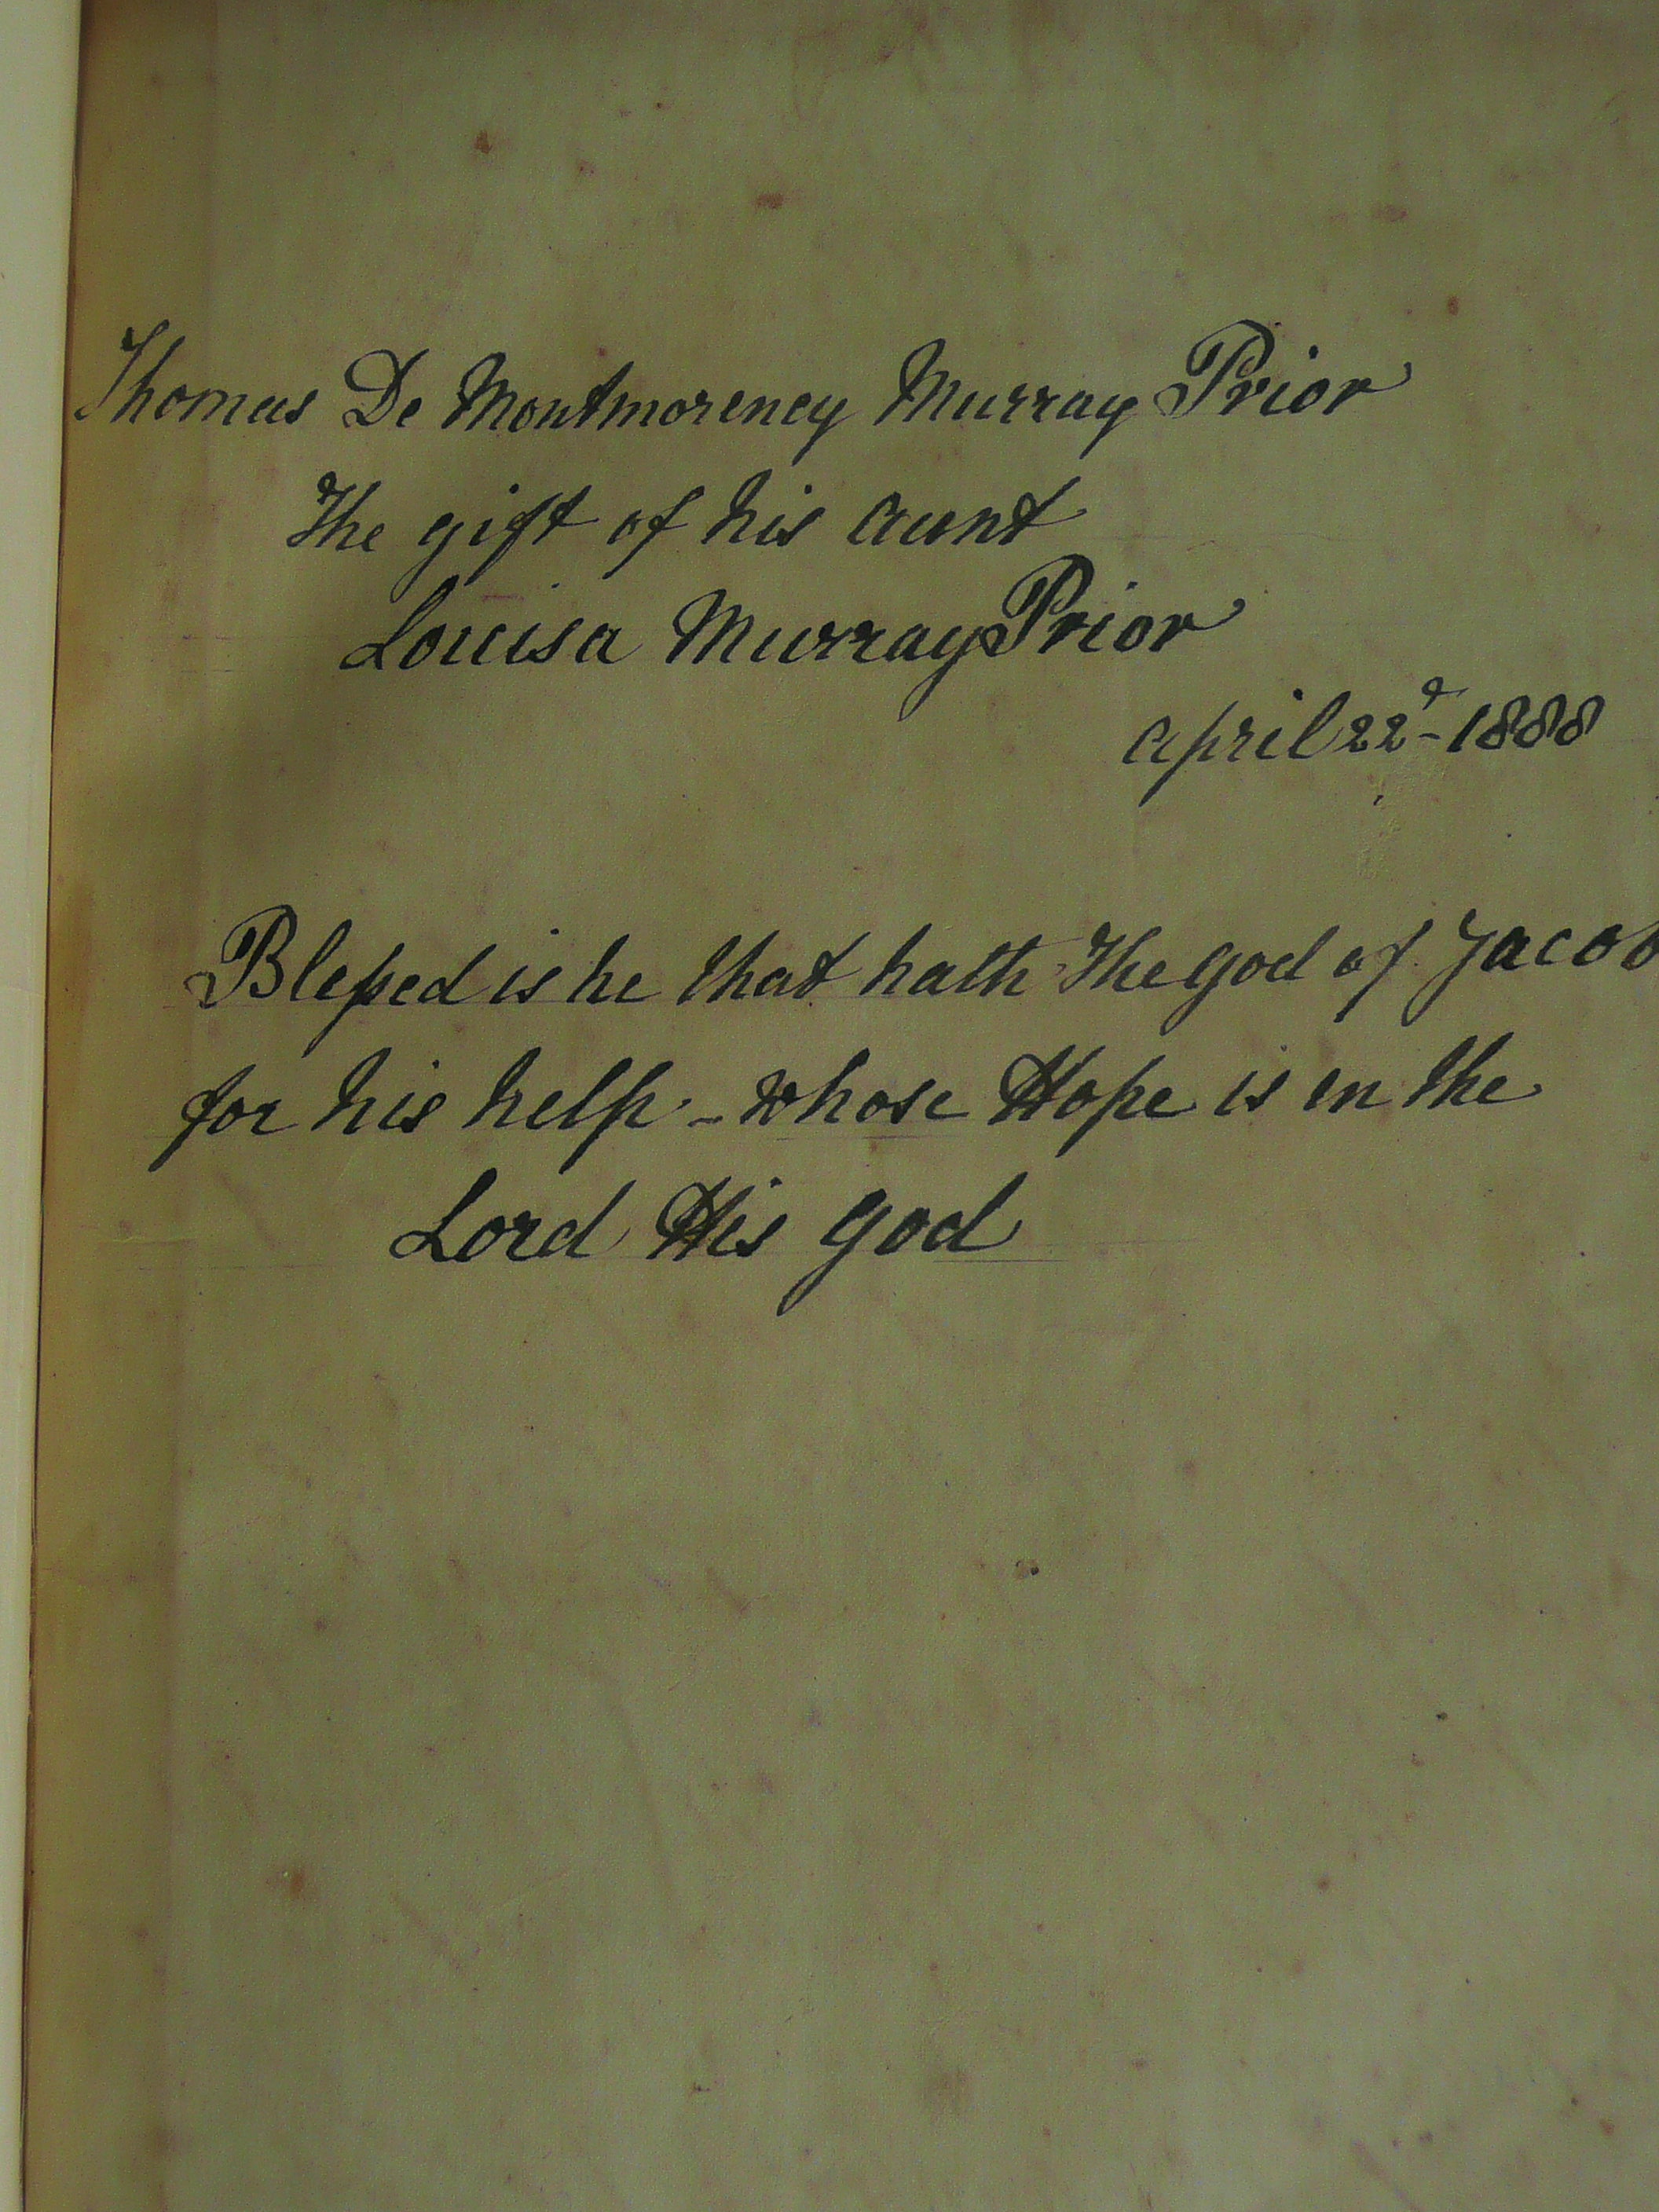 Thomas De Montmorency Murray Prior
The gift of his aunt
Louisa Murray Prior
April 22d - 1888
Blessed is he that hath The God of Jacob
for his help - whose Hope is in the
Lord His God